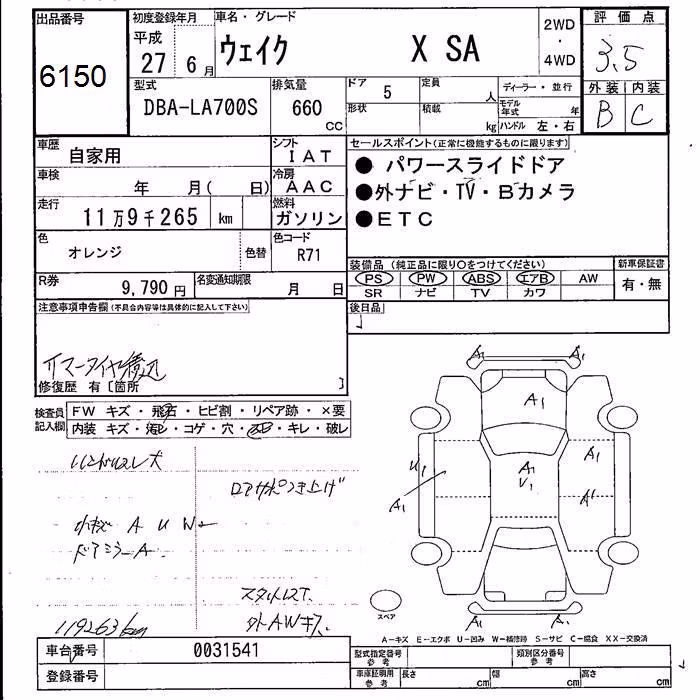 出品番号
6150
初度登録年月
平成
27 6月
車名・グレード
ウェイク X SA
2WD
・
4WD
評価点
3.5
外装 内装
B C
型式
DBA-LA700S
排気量
660
CC
ドア 5
定員 人
形状
積載 kg
ディーラー・並行
モデル年式 年
ハンドル 左・右
車歴
自家用
シフト
IAT
車検
年 月( 日)
冷房
AAC
走行
11万9千265 km
燃料
ガソリン
色
オレンジ
色替
色コード
R71
セールスポイント(正常に機能するものに限ります)
●パワースライドドア
●外ナビ・TV・Bカメラ
●ETC
R券
9,790円
名変通知期限
月 日
装備品(純正品に限り○をつけてください)
PS PW ABS エアB AW
SR ナビ TV カワ
新車保証書
有・無
後日品
注意事項申告欄(不具合内容等は具体的に記入して下さい)
修復歴 有〔箇所 〕
検査員
記入欄
FW キズ・飛石・ヒビ割・リペア跡・×要
内装 キズ・汚レ・コゲ・穴・凹・キレ・破レ
小キズ A U W
ドアミラーA
外AWキズ
119263km
A1 A1
A1
A1 A1
U1 A1
V1
A1 A1
A1 A1
スペア
A-キズ E-エクボ U-凹み W-補修跡 S-サビ C-腐食 XX-交換済
車台番号
0031541
登録番号
型式指定番号
参考
類別区分番号
参考
車庫証明用
参考
長さ cm
幅 cm
高さ cm